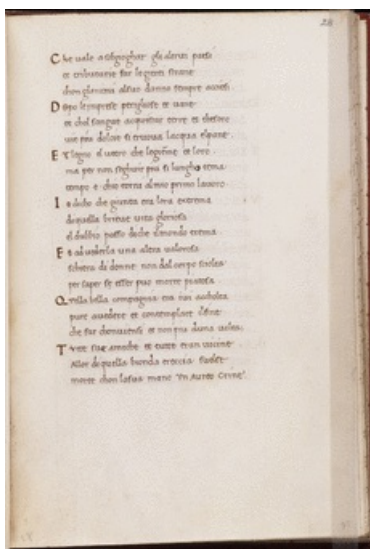 28
Che vale a sogioghar gli altrui paesi
et tributarie far le genti strane
chon glianimi alsuo danno sempre accesi
Dopo lemprese perigliose et vane
et chol sangue acquistar terre et thesoro
vie più dolcie si truova lacqua elpane
El legno el vetro che legieme et loro
ma per non seghuir piu si lungho tema
tempo e chio torni almio primo lavoro
I dicho che giunta era lora extrema
di quella brieve vita gloriosa
el dubbio passo di che elmondo trema
Era avederla una altra valorosa
schiera di donne non dal corpo sciolta
per saper se esser puo morte pietosa
Quella bella compagnia era ivi acholta
pure avedere et contemplare ilfine
che far chonviensi et non piu duna volta
Tutte sue amiche et tutte eran vicine
Allor di quella bionda treccia svelse
morte chon lasua mano un aureo crine